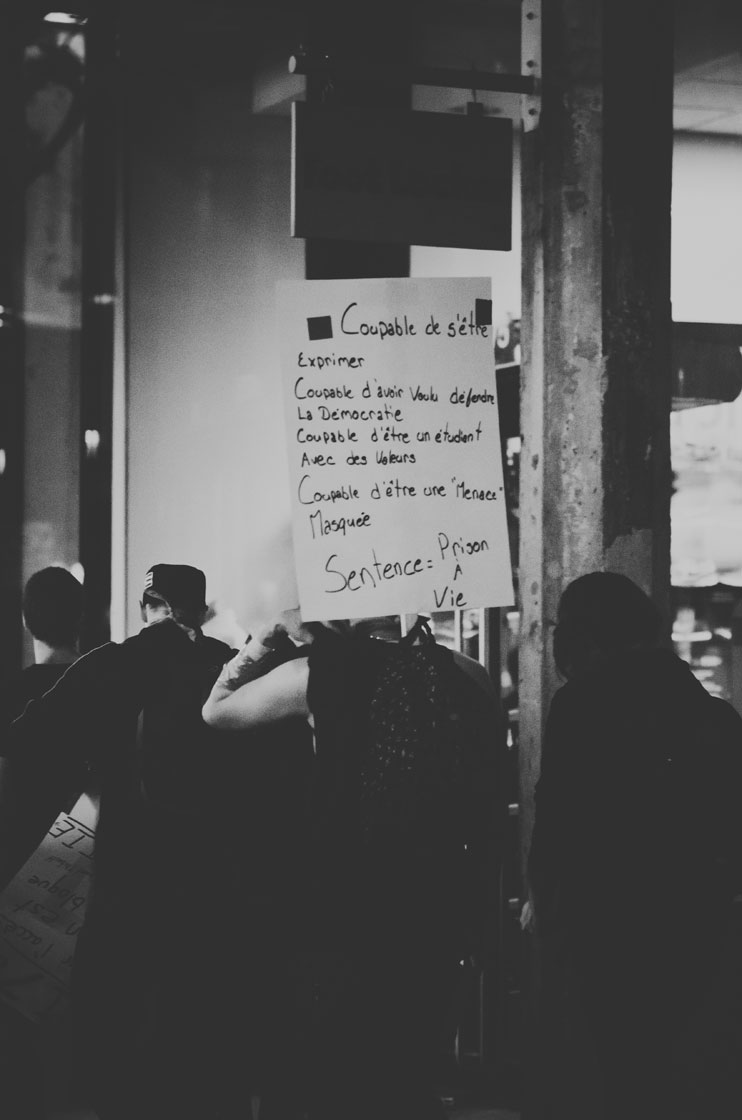 Coupable de s'être
Exprimer
Coupable d'avoir Voulu défendre
La Démocratie
Coupable d'être un étudiant
Avec des Valeurs
Coupable d'être une "Menace"
Masquée
Sentence = Prison
À
Vie
bloque
n est
l'accès